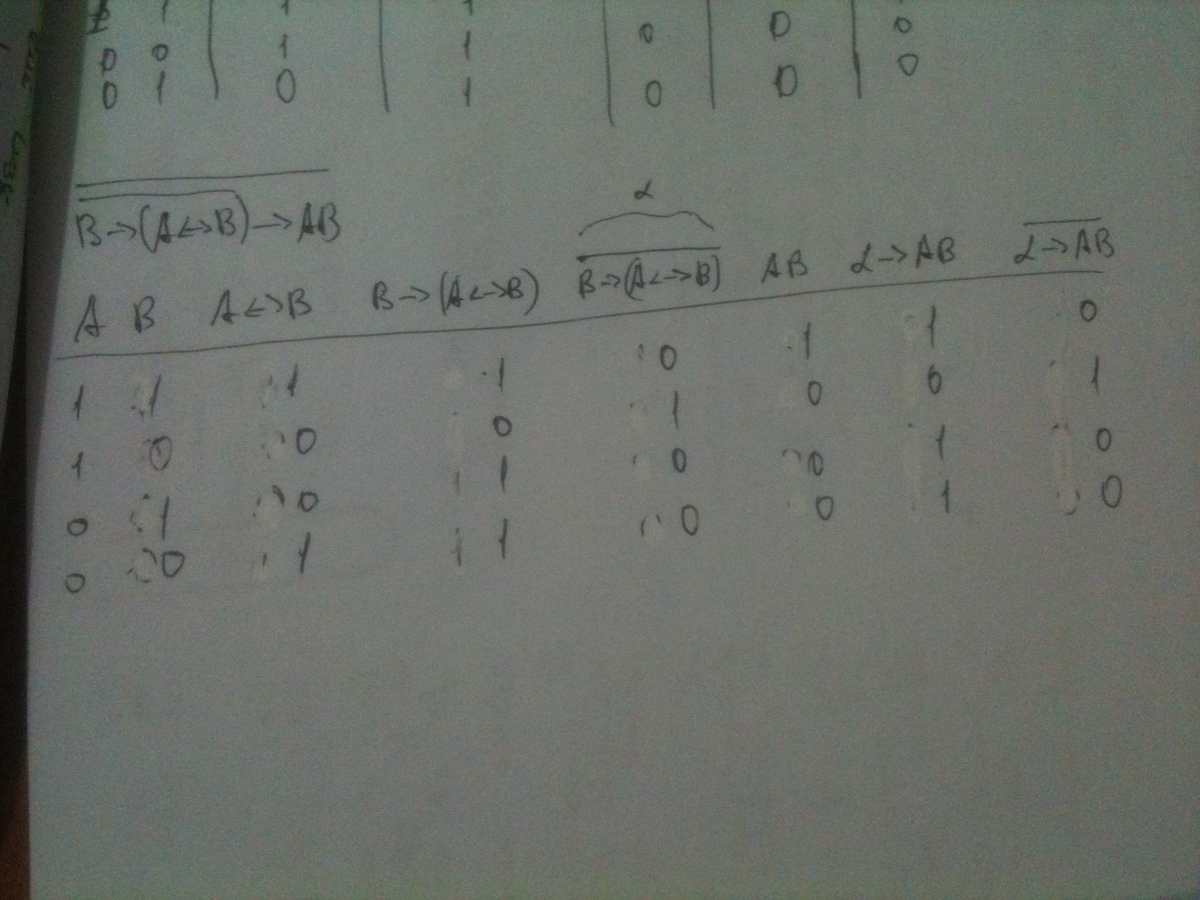 1 1
0 0 1 1 0 0 0
0 1 0 1 0 0 0
B→(A↔B)→AB
α
A B A↔B B→(A↔B) B→(A↔B) AB α→AB α→AB
1 1 1 1 0 1 1 0
1 0 0 0 1 0 0 1
0 1 0 1 0 0 1 0
0 0 1 1 0 0 1 0